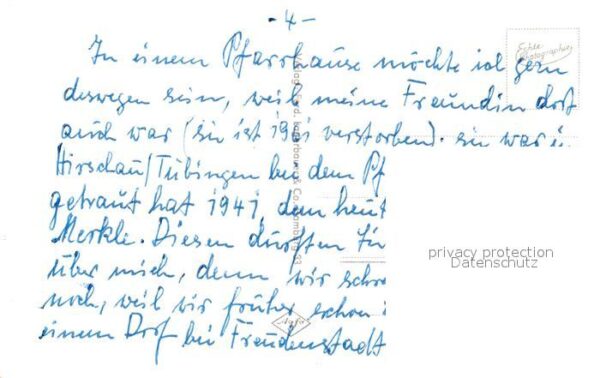 - 4 -
In einem Pfarrhause möchte ich gern
deswegen sein, weil meine Freundin dort
auch war (sie ist 1961 verstorben). sie war i.
Hirschau/Tübingen bei dem Pf
getraut hat 1941, dem heut
Merkle. Diesen dürften
über mich, denn wir schre
noch, weil wir früher schon i
einem Dorf bei Freudenstadt
Echte
Photographie
Agfa
privacy protection
Datenschutz